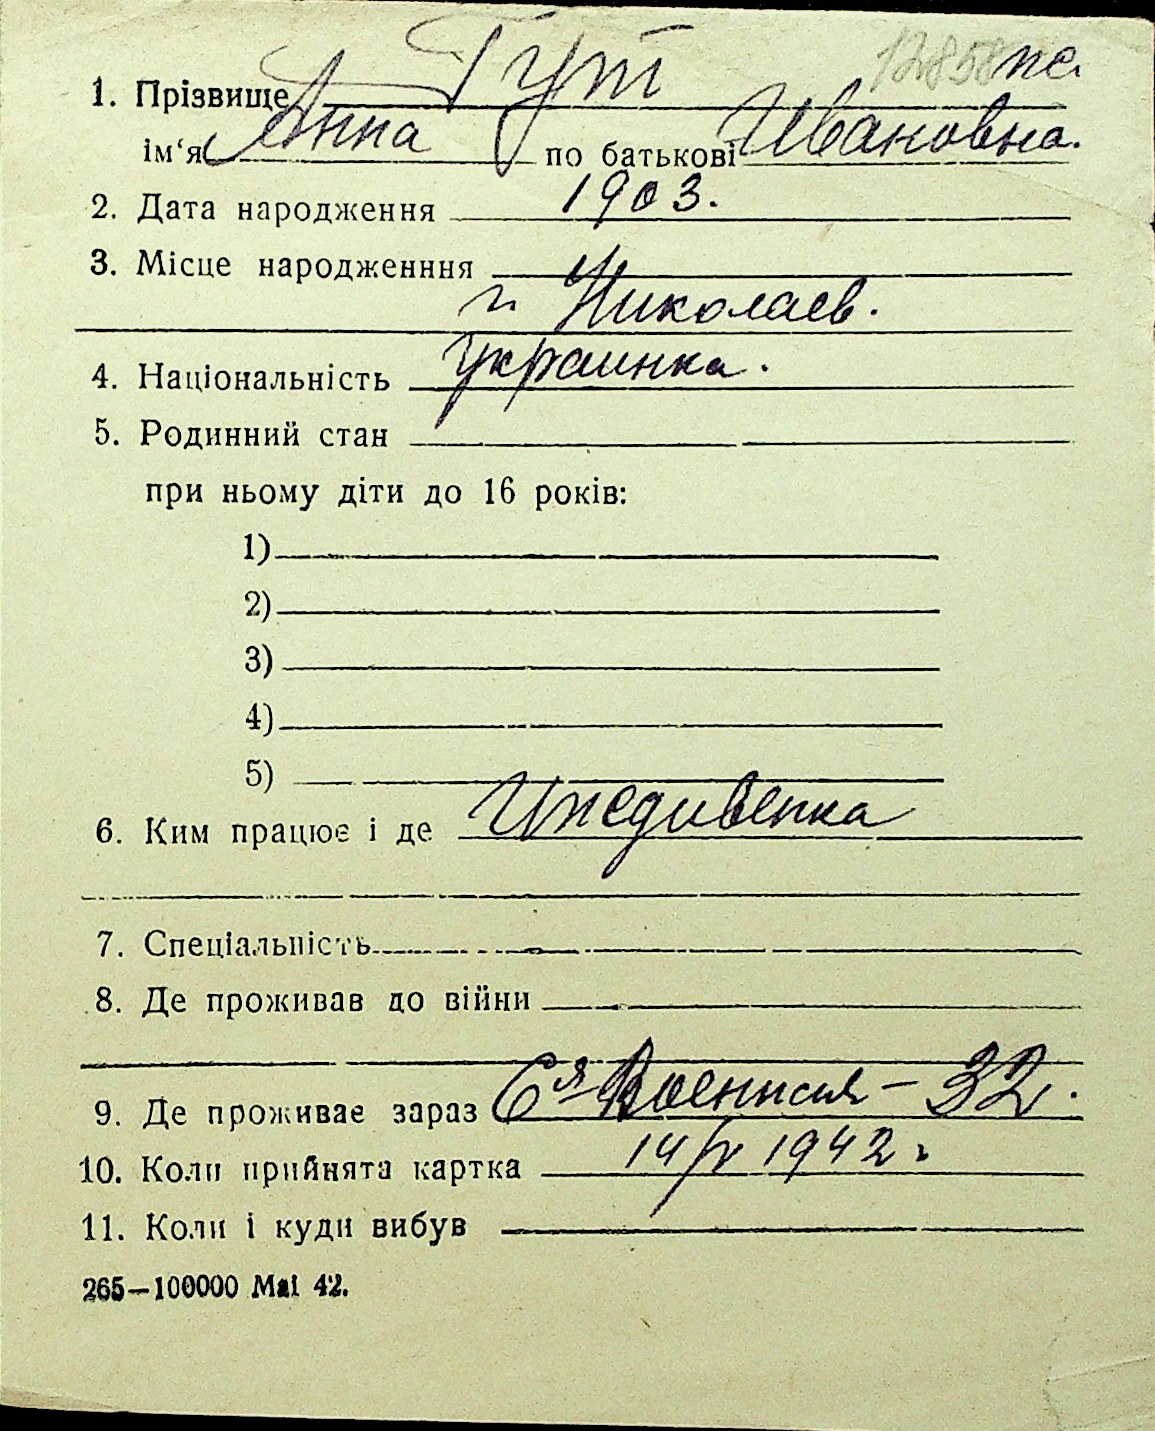 12858 пе.
1. Прізвище Гут
ім‘я Анна по батькові Ивановна.
2. Дата народження 1903.
3. Місце народженння
г. Николаев.
4. Національність украинка.
5. Родинний стан
при ньому діти до 16 років:
1)
2)
3)
4)
5)
6. Ким працює і де Иждивенка
7. Спеціальність
8. Де проживав до війни
9. Де проживає зараз 6я Военная – 32.
10. Коли прийнята картка 14/V 1942 г
11. Коли і куди вибув
265—100000 Mai 42.